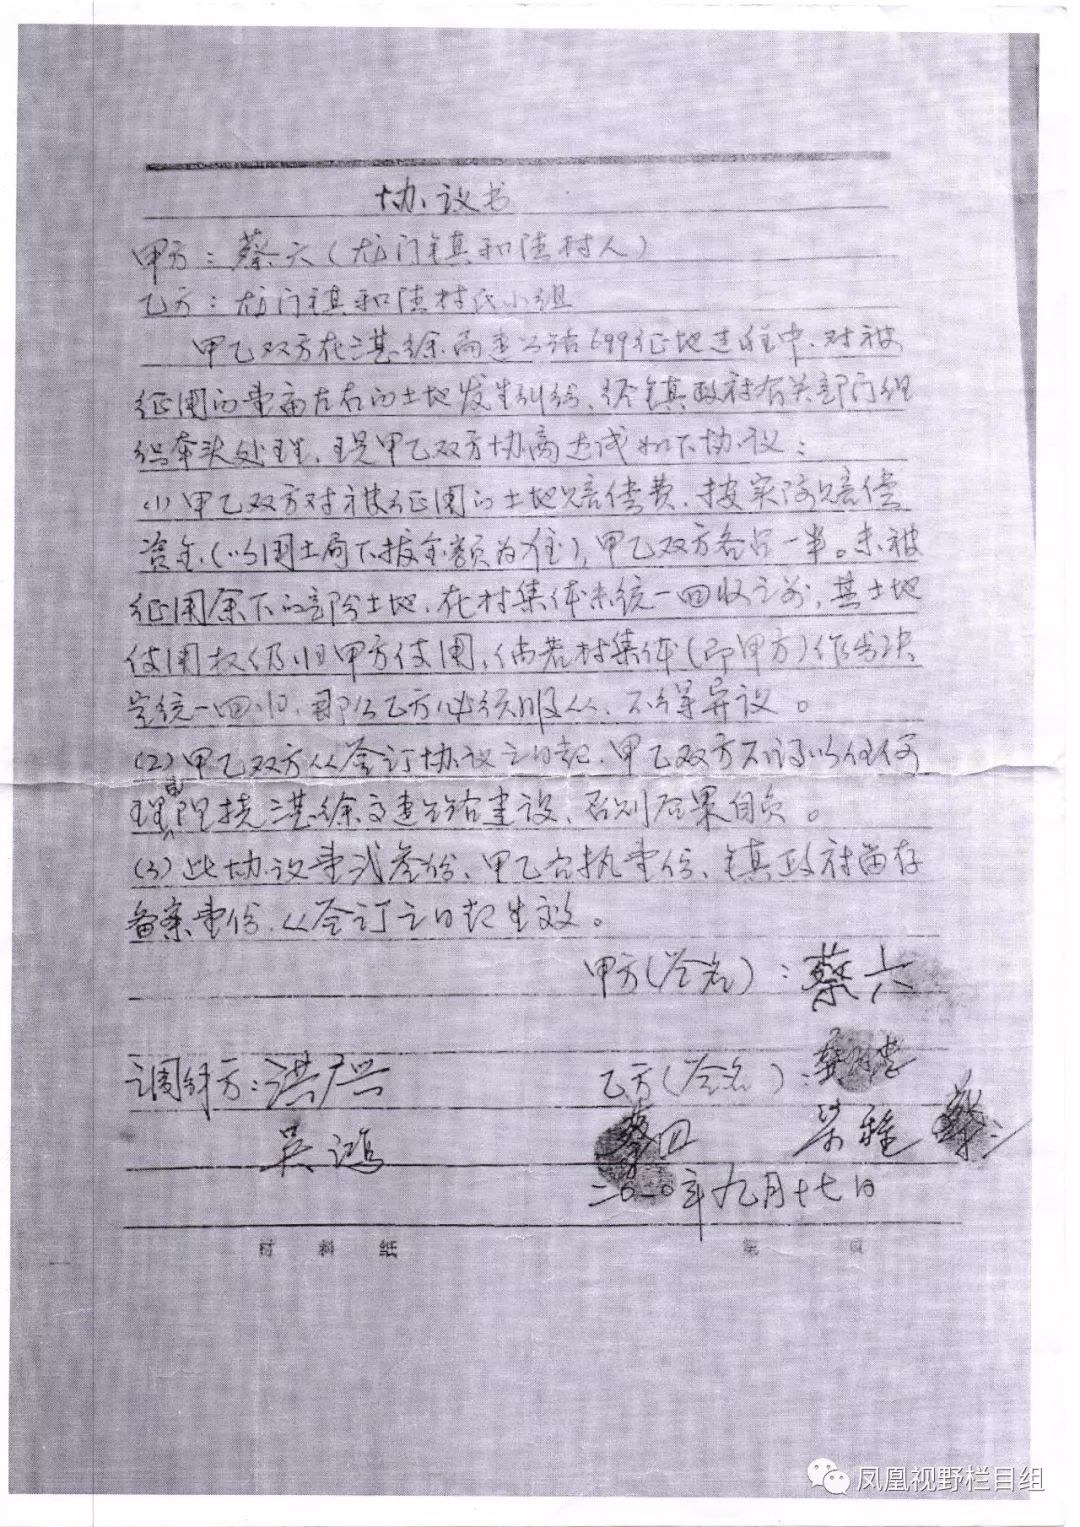 协议书
甲方：蔡六（龙门镇和陆村人）
乙方：龙门镇和陆村民小组
甲乙双方在湛徐高速公路699征地过程中，对被
征用的壹亩左右的土地发生纠纷，经镇政府有关部门组
织牵头处理，现甲乙双方协商达成如下协议：
(1)甲乙双方对被征用的土地赔偿费，按实际赔偿
资金（以国土局下拨金额为准），甲乙双方各占一半。未被
征用余下的部份土地，在村集体未统一回收之前，其土地
使用权仍归甲方使用，倘若村集体（即甲方）作出决
定统一回归，那么乙方必须服从，不得异议。
(2)甲乙双方从签订协议之日起，甲乙双方不得以任何
理由阻挠湛徐高速公路建设，否则后果自负。
(3)此协议壹式叁份，甲乙各执壹份，镇政府留存
备案壹份，从签订之日起生效。
甲方（签名）：蔡六
调解方：洪广兴 乙方（签名）：
吴鸿 蔡四 荣雄 蔡三
二0一0年九月十七日
材料纸 第 页
凤凰视野栏目组